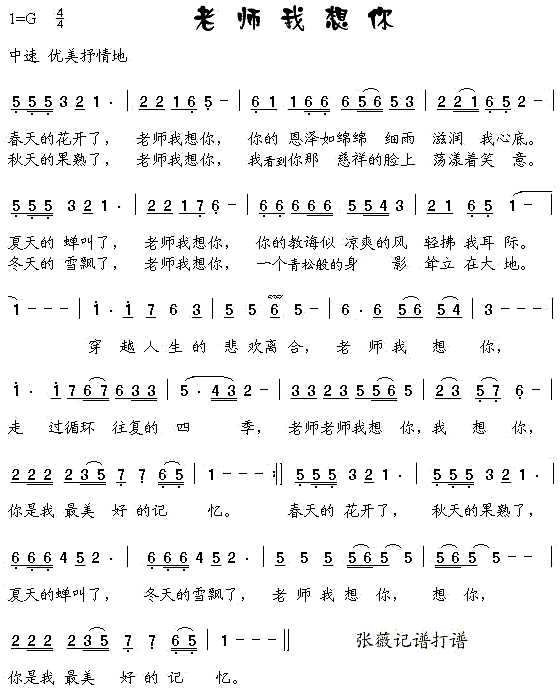 1=G 4/4 老师我想你
中速 优美抒情地
5 5 5 3 2 1 · | 2 2 1 6 5 – | 6 1 1 6 6 6 6 5 6 5 3 | 2 2 1 6 5 2 – |
春天的花开了， 老师我想你， 你的 恩泽如绵绵 细雨 滋润 我心底。
秋天的果熟了， 老师我想你， 我看到你那 慈祥的脸上 荡漾着笑 意。
5 5 5 3 2 1 · | 2 2 1 7 6 – | 6 6 6 6 6 5 5 4 3 | 2 1 6 5 1 – |
夏天的 蝉叫了， 老师我想你， 你的教诲似 凉爽的风 轻拂 我耳 际。
冬天的 雪飘了， 老师我想你， 一个青松般的身 影 耸立 在大 地。
1 – – – | 1 · 1 7 6 3 | 5 5 6 5 – | 6 · 6 5 6 5 4 | 3 – – – |
穿 越人生的 悲欢离合， 老师我 想 你，
1 · 1 7 6 7 6 3 3 | 5 · 4 3 2 – | 3 3 2 3 5 5 5 6 5 | 2 3 5 7 6 – |
走 过循环 往复的 四 季， 老师老师我想 你，我 想 你，
2 2 2 2 3 5 7 7 6 5 | 1 – – – :|| 5 5 5 3 2 1 · | 5 5 5 3 2 1 · |
你是我 最美 好 的记 忆。 春天的 花开了， 秋天的果熟了，
6 6 6 4 5 2 · | 6 6 6 4 5 2 · | 5 5 5 5 6 5 5 | 5 6 5 5 – – |
夏天的蝉叫了， 冬天的雪飘了， 老 师 我 想 你， 想 你，
2 2 2 2 3 5 7 7 6 5 | 1 – – – || 张薇记谱打谱
你是我 最美 好 的 记 忆。